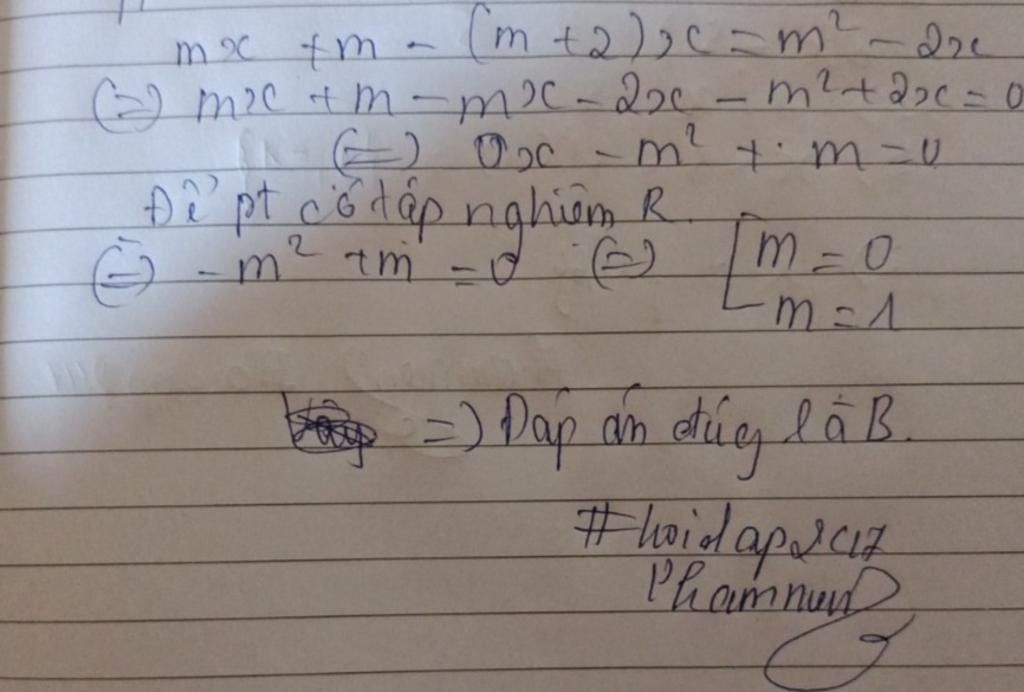 mx + m - (m + 2)x = m² - 2x
(=) mx + m - mx - 2x - m² + 2x = 0
(=) 0x - m² + m = 0
Để pt có tập nghiệm R.
(=) - m² + m = 0 (=) [ m = 0
m = 1
=) Đáp án đúg là B.
#hoidap2c17